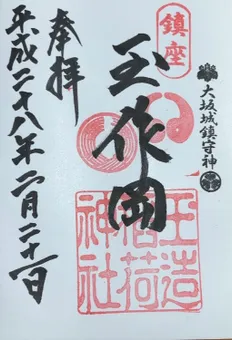 鎮座
大坂城鎮守神
玉作岡
玉造
稲荷
神社
奉拝
平成二十八年二月二十一日